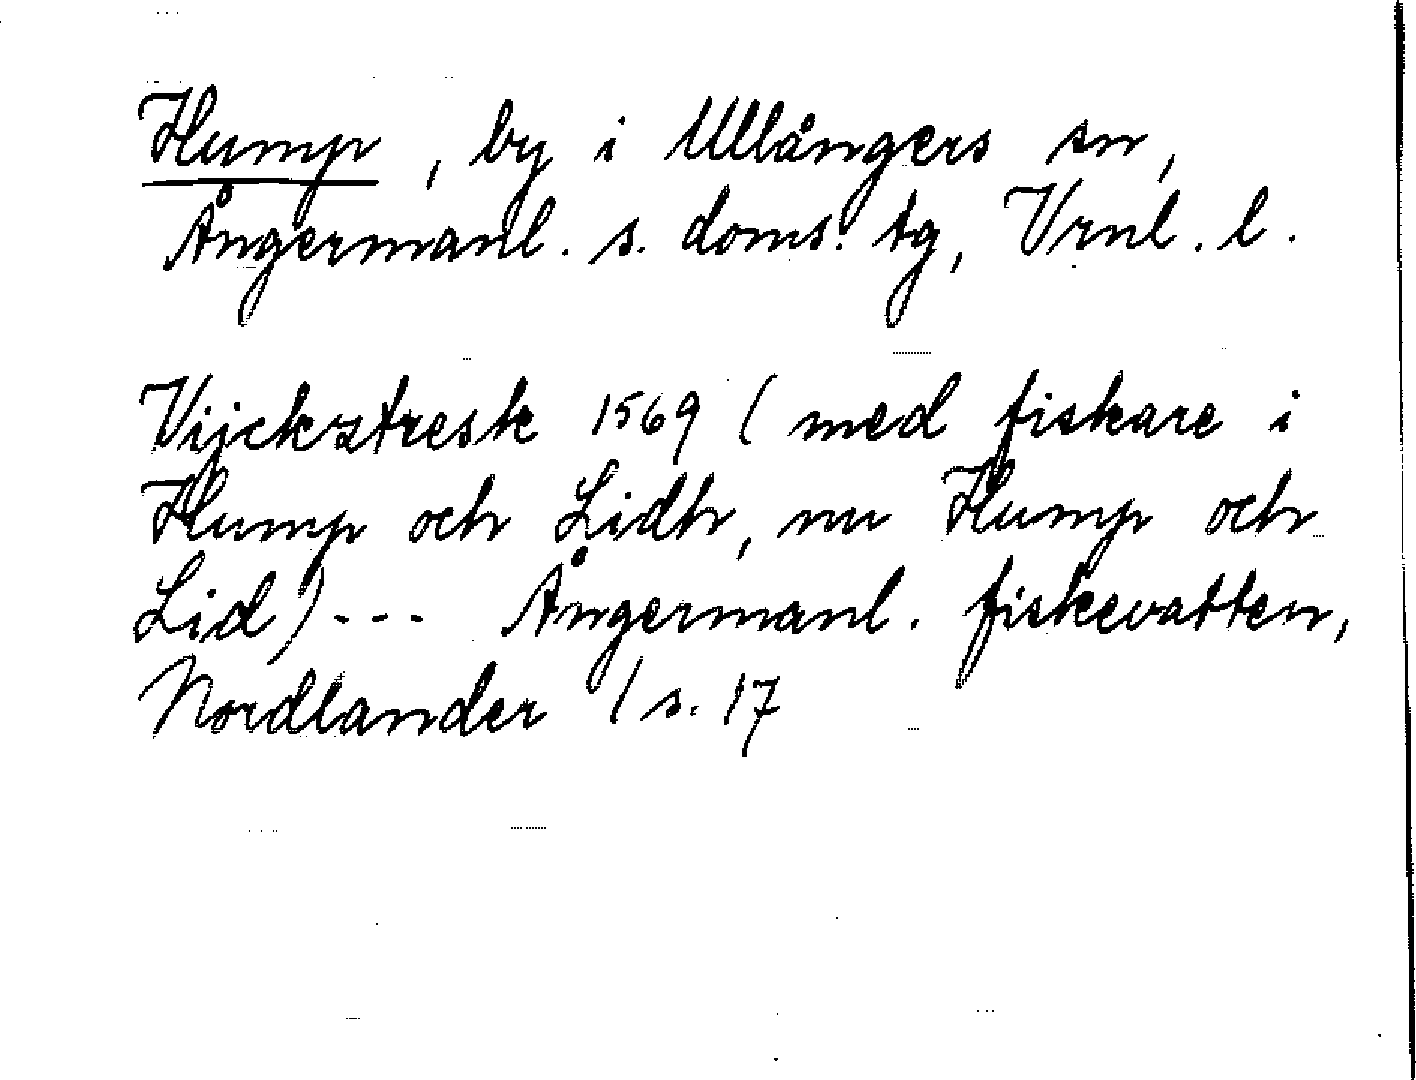 Hump, by i Ullångers sn,
Ångermanl. s. doms. tg, Vrnl. l.
Vijckztresk 1569 (med fiskare i
Hump och Lidh, nu Hump och
Lid) --- Ångermanl. fiskevatten,
Nordlander / s. 17